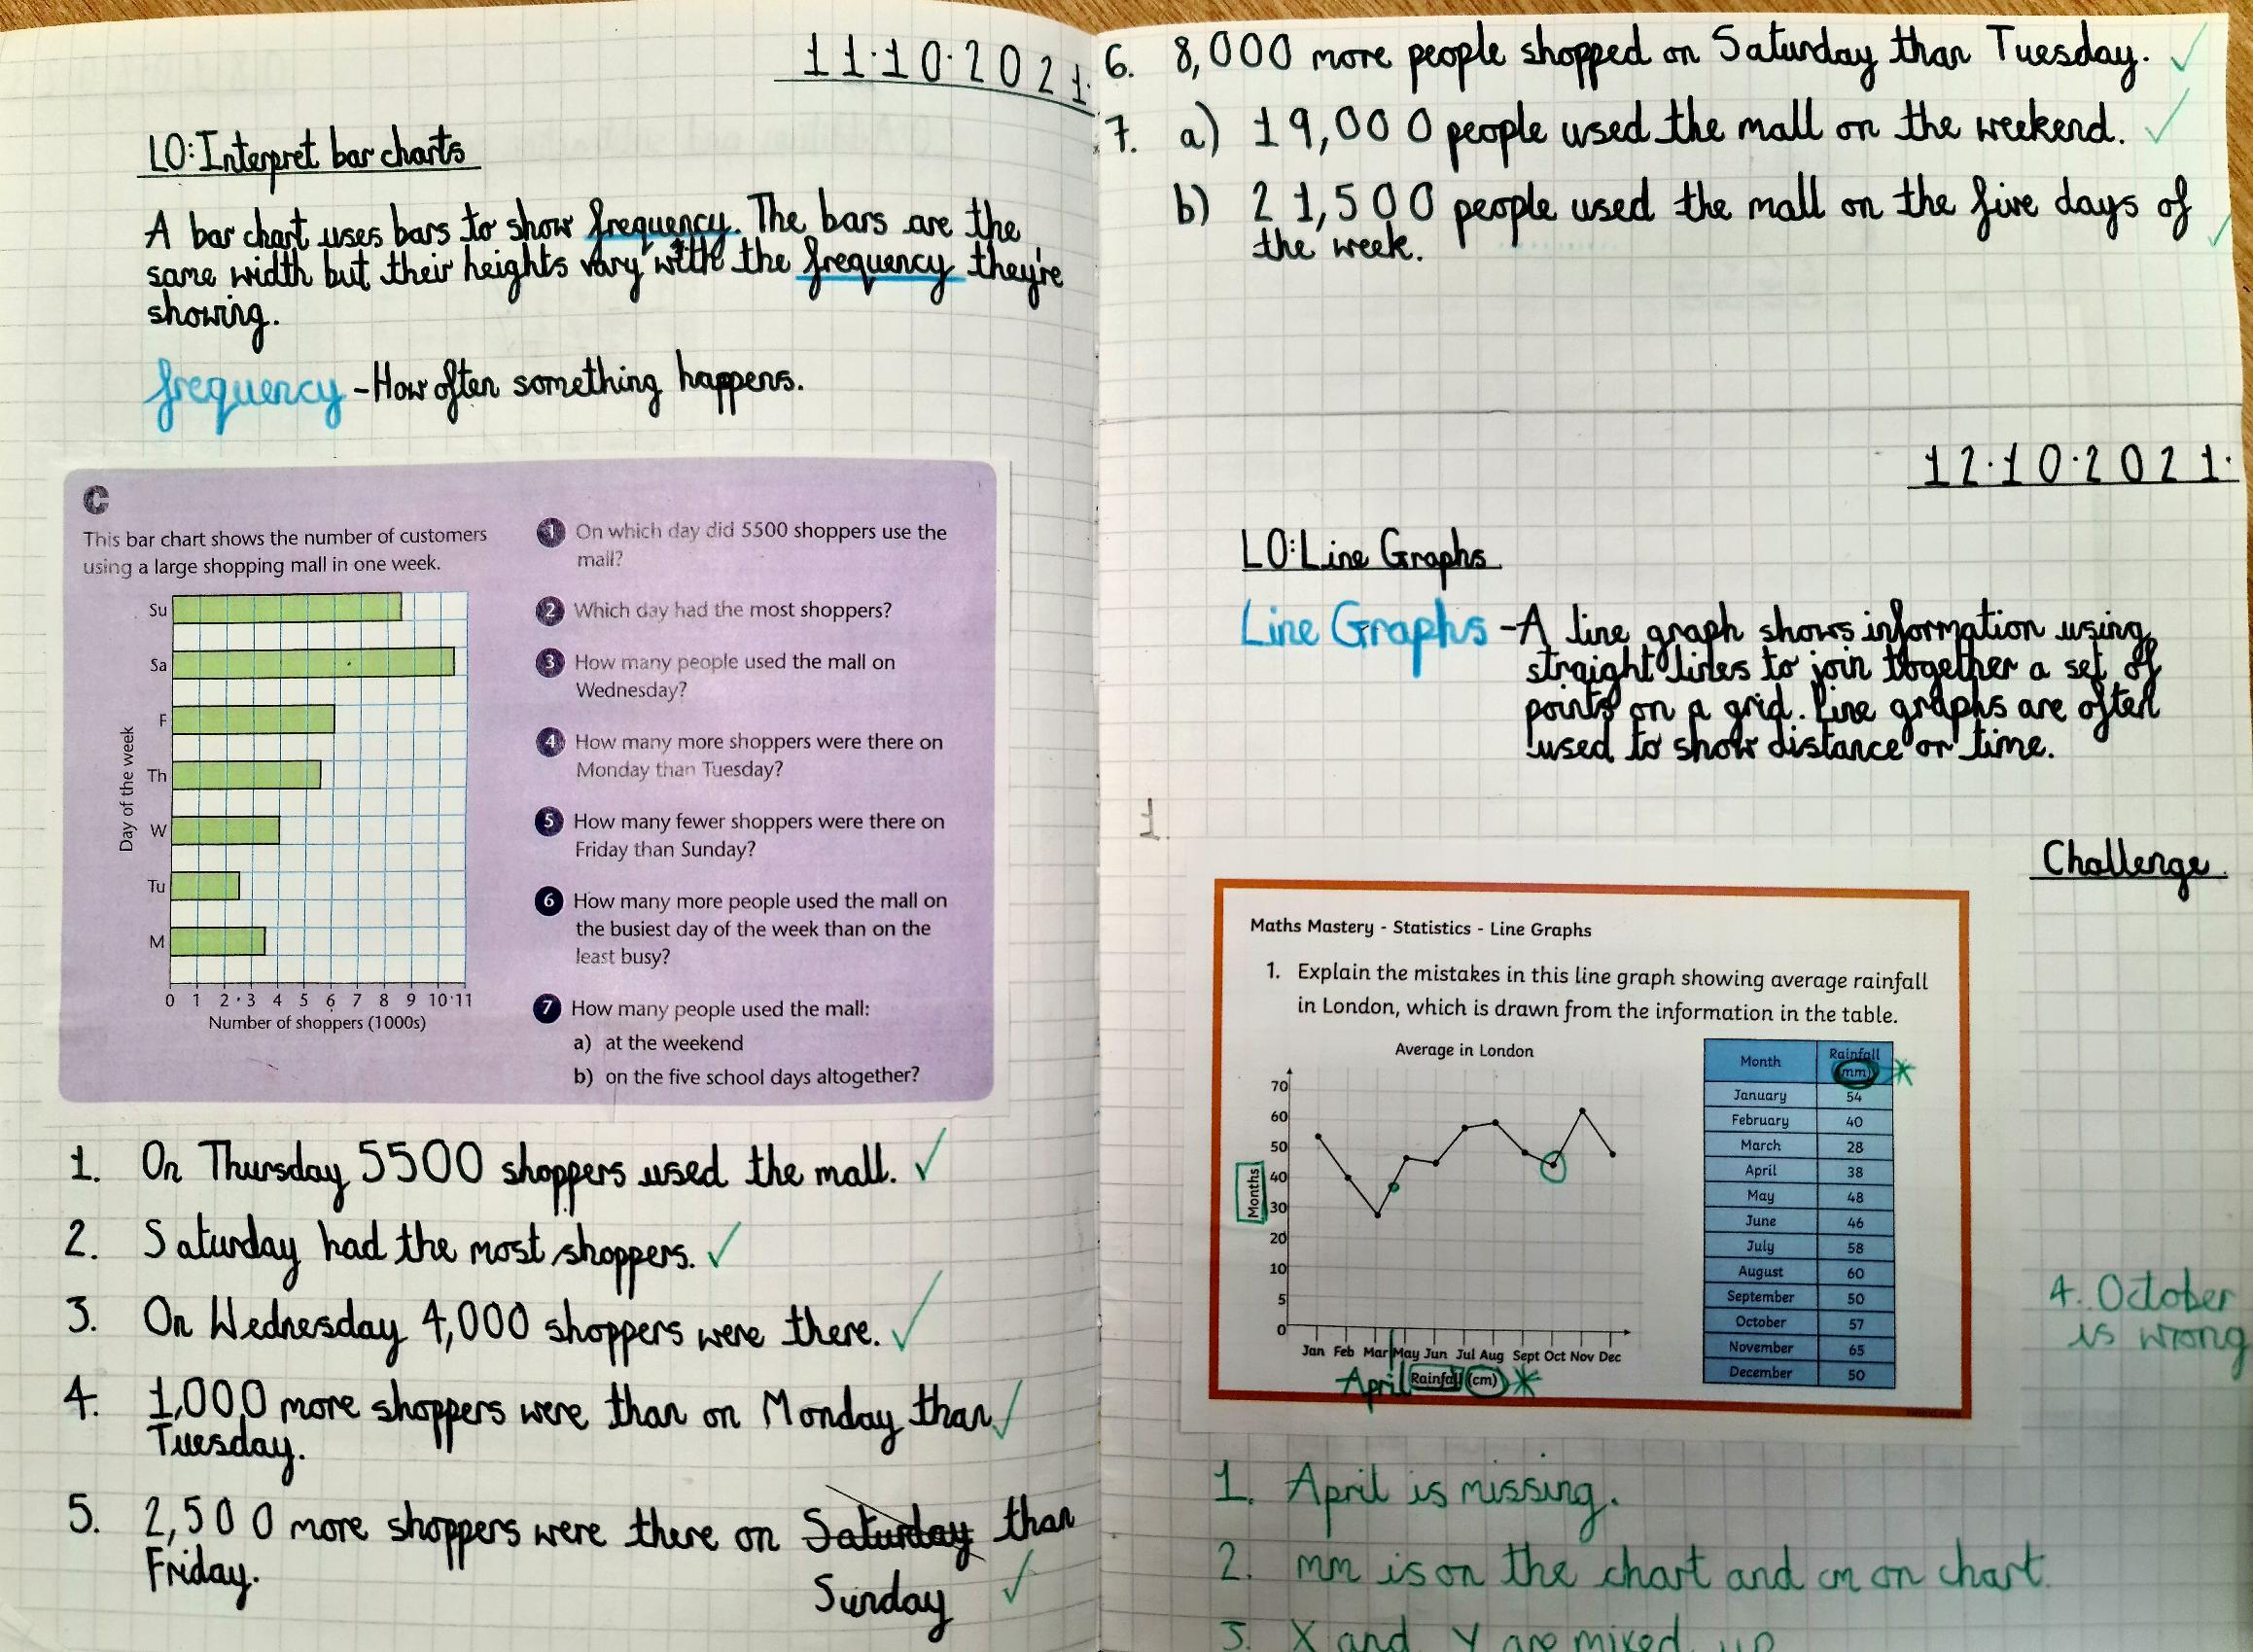 11.10.2021.
LO: Interpret bar charts
A bar chart uses bars to show frequency. The bars are the
same width but their heights vary with the frequency they're
showing.
frequency - How often something happens.
C
This bar chart shows the number of customers
using a large shopping mall in one week.
Su
Sa
F
Th
W
Tu
M
Day of the week
0 1 2 3 4 5 6 7 8 9 10 11
Number of shoppers (1000s)
1 On which day did 5500 shoppers use the
mall?
2 Which day had the most shoppers?
3 How many people used the mall on
Wednesday?
4 How many more shoppers were there on
Monday than Tuesday?
5 How many fewer shoppers were there on
Friday than Sunday?
6 How many more people used the mall on
the busiest day of the week than on the
least busy?
7 How many people used the mall:
a) at the weekend
b) on the five school days altogether?
1. On Thursday 5500 shoppers used the mall.
2. Saturday had the most shoppers.
3. On Wednesday 4,000 shoppers were there.
4. 1,000 more shoppers were than on Monday than
Tuesday.
5. 2,500 more shoppers were there on Saturday than
Friday.
Sunday
6. 8,000 more people shopped on Saturday than Tuesday.
7. a) 19,000 people used the mall on the weekend.
b) 21,500 people used the mall on the five days of
the week.
12.10.2021.
LO: Line Graphs
Line Graphs - A line graph shows information using
straight lines to join together a set of
points on a grid. Line graphs are often
used to show distance or time.
1.
Challenge
Maths Mastery - Statistics - Line Graphs
1. Explain the mistakes in this line graph showing average rainfall
in London, which is drawn from the information in the table.
Average in London
70
60
50
40
30
20
10
5
0
Months
Jan Feb Mar May Jun Jul Aug Sept Oct Nov Dec
April Rainfall (cm) *
Month Rainfall (mm) *
January 54
February 40
March 28
April 38
May 48
June 46
July 58
August 60
September 50
October 57
November 65
December 50
4. October
is wrong
1. April is missing.
2. mm is on the chart and cm on chart.
3. X and Y are mixed up